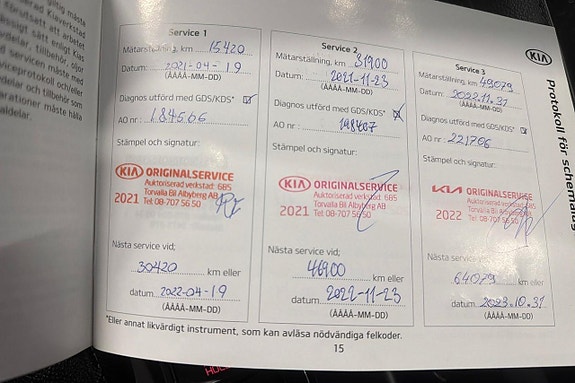 giltig måste
förutsatt att
terad Kiaverkstad
utför allt arbete
sätt enligt Kias
delar, tillbehör, oljor
servicen måste med
serviceprotokoll och/eller
delar och tillbehör som
arationer måste hålla
aldelar.
Service 1
Mätarställning, km 15420
Datum: 2021-04-19
(ÅÅÅÅ-MM-DD)
Diagnos utförd med GDS/KDS*
AO nr: 184566
Stämpel och signatur:
KIA ORIGINALSERVICE
Auktoriserad verkstad: 685
Torvalla Bil Albyberg AB
2021 Tel 08-707 56 50
Nästa service vid;
30420 km eller
datum 2022-04-19
(ÅÅÅÅ-MM-DD)
Service 2
Mätarställning, km 31900
Datum: 2021-11-23
(ÅÅÅÅ-MM-DD)
Diagnos utförd med GDS/KDS*
AO nr: 198407
Stämpel och signatur:
KIA ORIGINALSERVICE
Auktoriserad verkstad: 685
Torvalla Bil Albyberg AB
2021 Tel 08-707 56 50
Nästa service vid;
46900 km eller
datum 2022-11-23
(ÅÅÅÅ-MM-DD)
Service 3
Mätarställning, km 49079
Datum: 2022.11.31
(ÅÅÅÅ-MM-DD)
Diagnos utförd med GDS/KDS*
AO nr: 221706
Stämpel och signatur:
KIA ORIGINALSERVICE
Auktoriserad verkstad: 685
Torvalla Bil Albyberg AB
2022 Tel 08-707 56 50
Nästa service vid;
64079 km eller
datum 2023.10.31
(ÅÅÅÅ-MM-DD)
*Eller annat likvärdigt instrument, som kan avläsa nödvändiga felkoder.
15
KIA
Protokoll för schemales